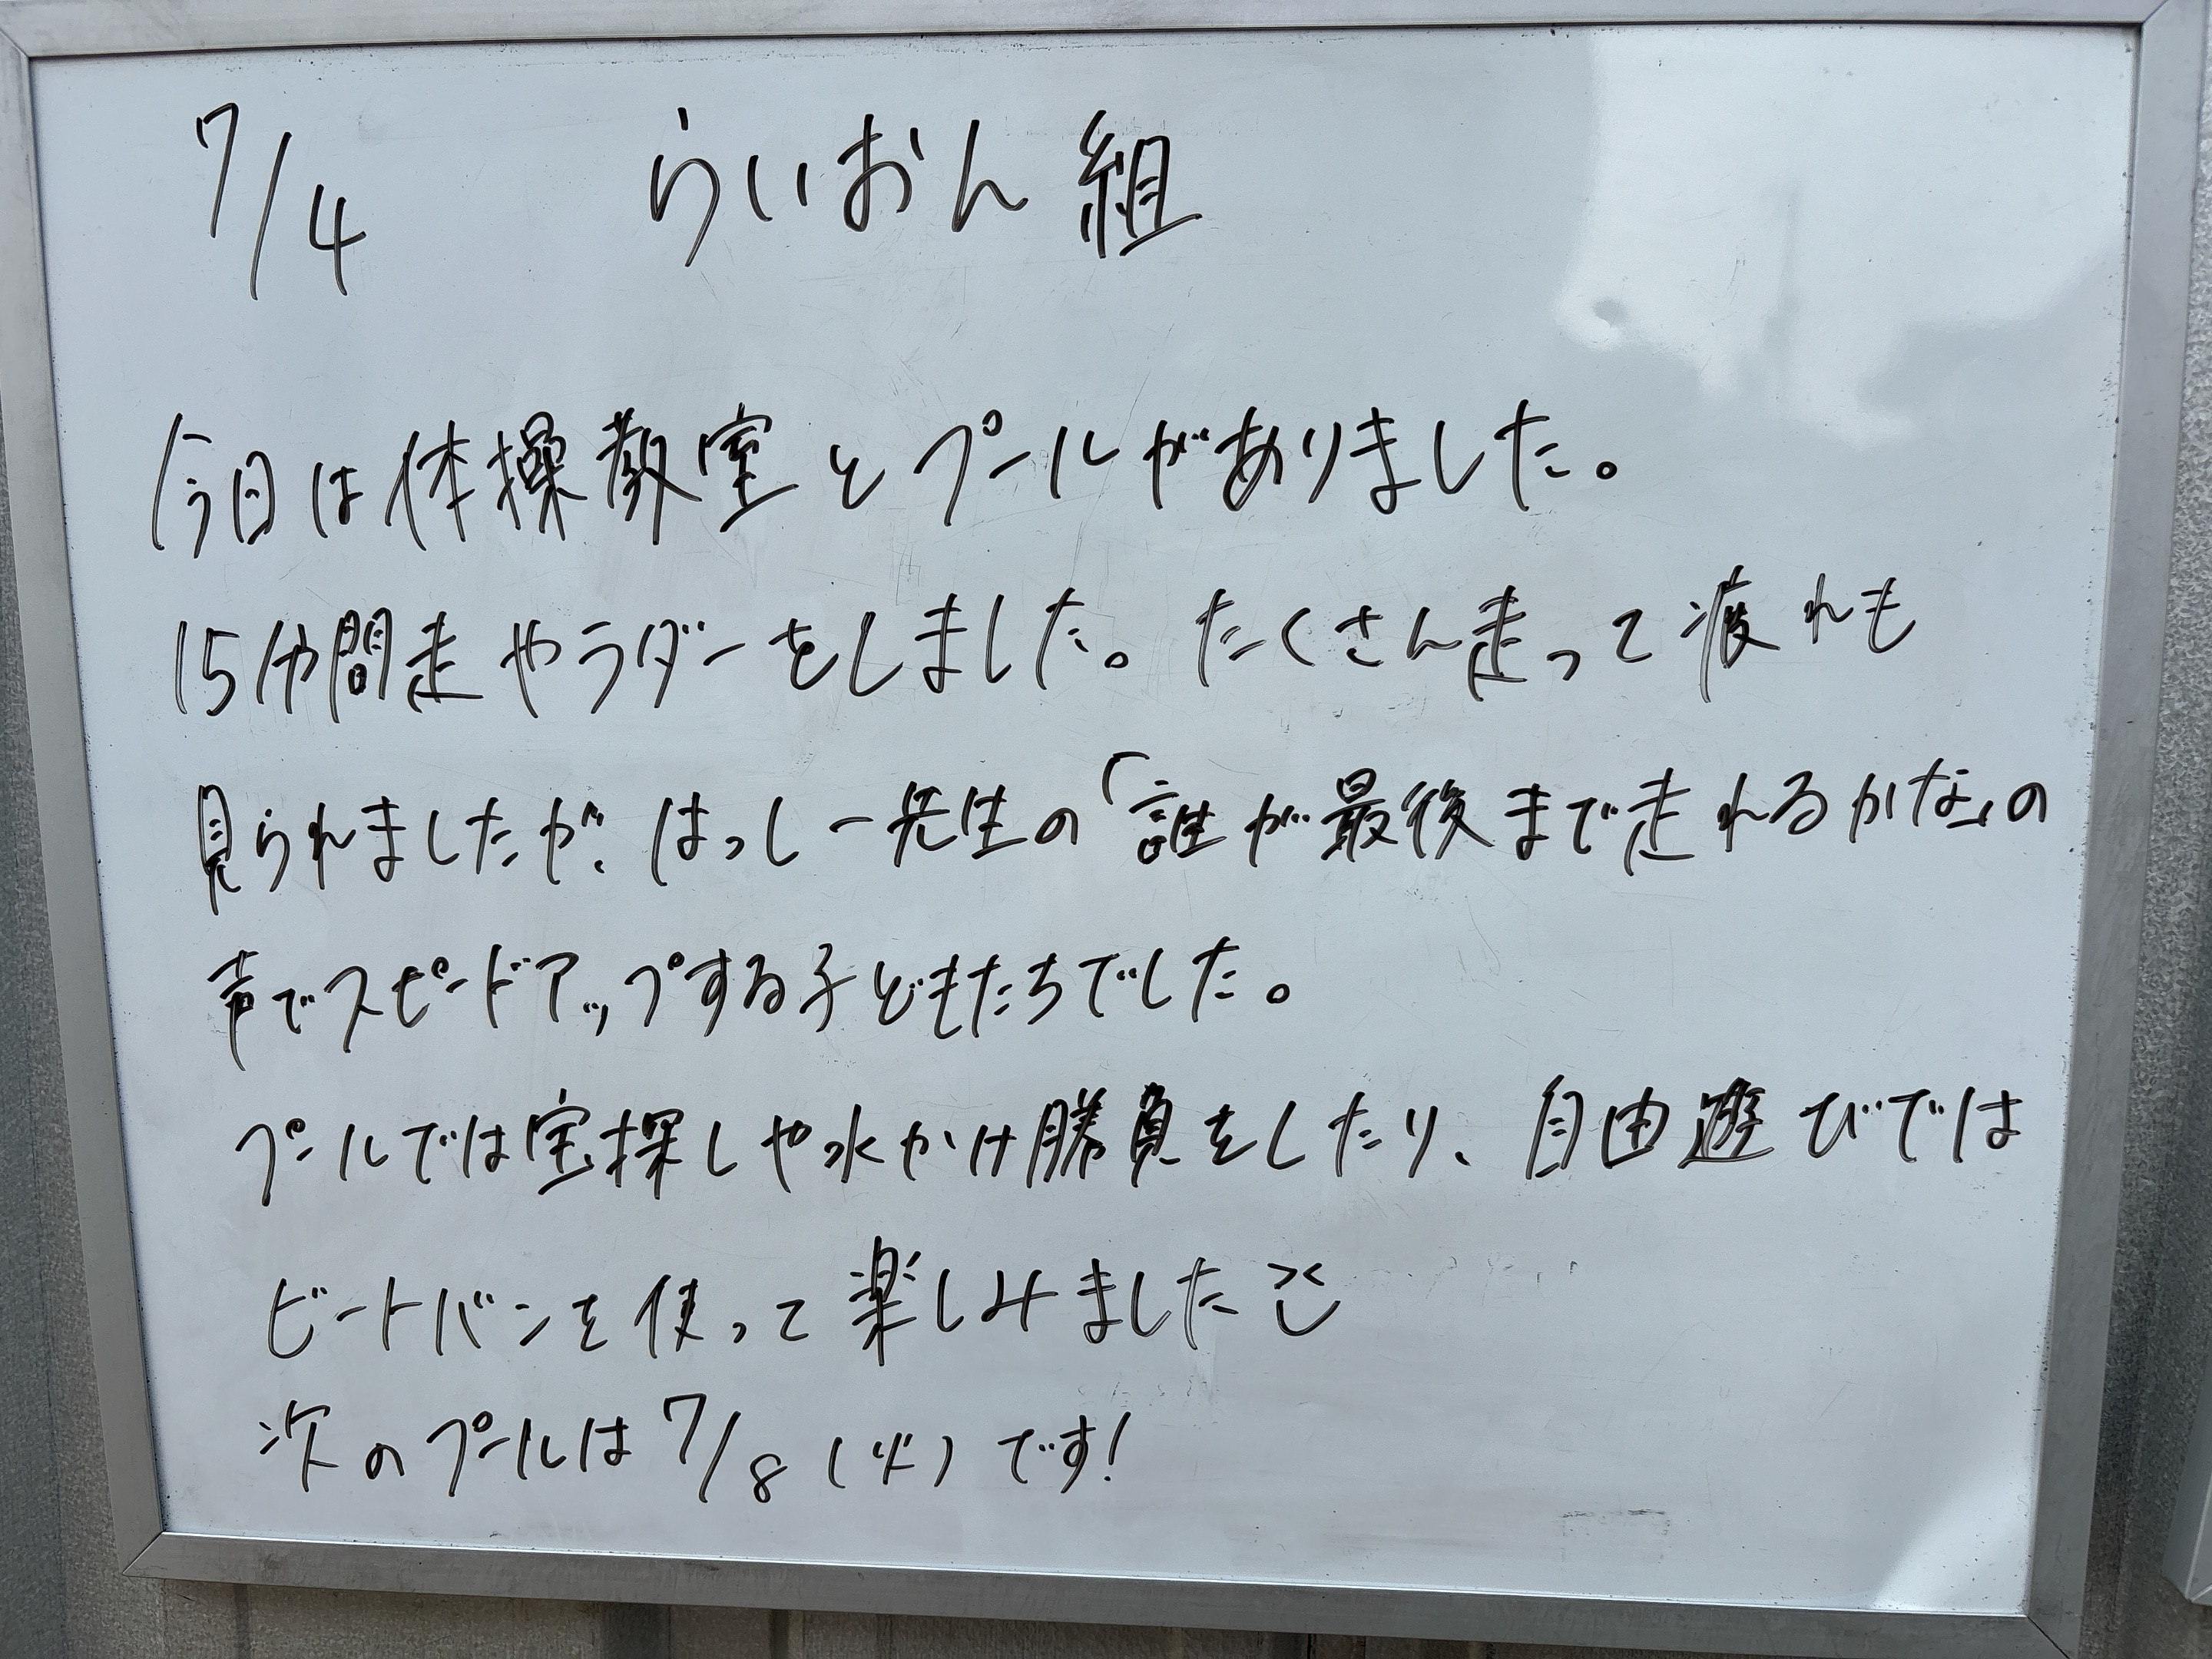 7/4 らいおん組
今日は体操教室とプールがありました。
15分間走やラダーをしました。たくさん走って疲れも
見られましたが、はっしー先生の「誰が最後まで走れるかな」の
声でスピードアップする子どもたちでした。
プールでは宝探しや水かけ勝負をしたり、自由遊びでは
ビートバンを使って楽しみました
次のプールは7/8(火)です!